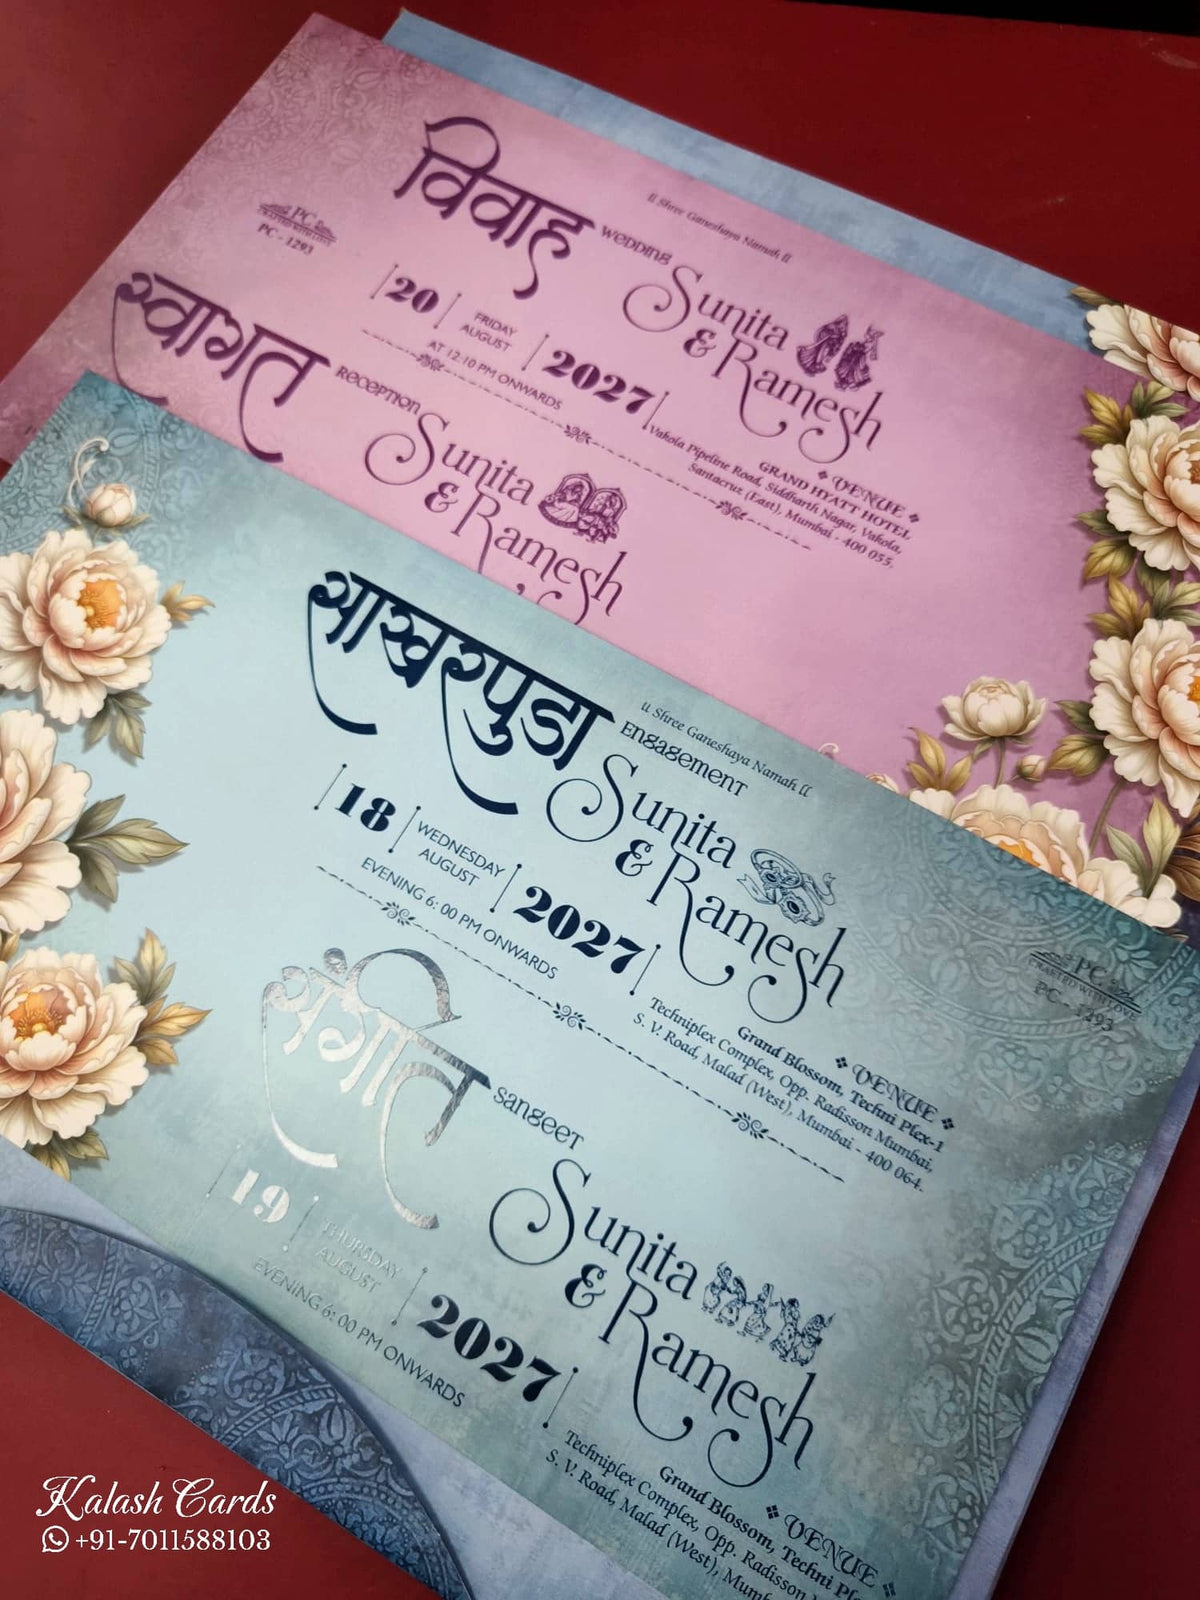 ll Shree Ganeshaya Namah ll
विवाह WEDDING
Sunita
& Ramesh
20 FRIDAY AUGUST 2027
AT 12:10 PM ONWARDS
VENUE
GRAND HYATT HOTEL
Vakola Pipeline Road, Siddharth Nagar, Vakola,
Santacruz (East), Mumbai - 400 055.
PC
CRAFTED WITH LOVE
PC - 1293
स्वागत RECEPTION
Sunita
& Ramesh
ll Shree Ganeshaya Namah ll
साखरपुडा ENGAGEMENT
Sunita
& Ramesh
18 WEDNESDAY AUGUST 2027
EVENING 6: 00 PM ONWARDS
VENUE
Grand Blossom, Techni Plex-1
Techniplex Complex, Opp. Radisson Mumbai,
S. V. Road, Malad (West), Mumbai - 400 064.
PC
CRAFTED WITH LOVE
PC - 1293
संगीत SANGEET
Sunita
& Ramesh
19 THURSDAY AUGUST 2027
EVENING 6: 00 PM ONWARDS
VENUE
Grand Blossom, Techni
Techniplex Complex, Opp. Radisson
S. V. Road, Malad (West),
Kalash Cards
+91-7011588103